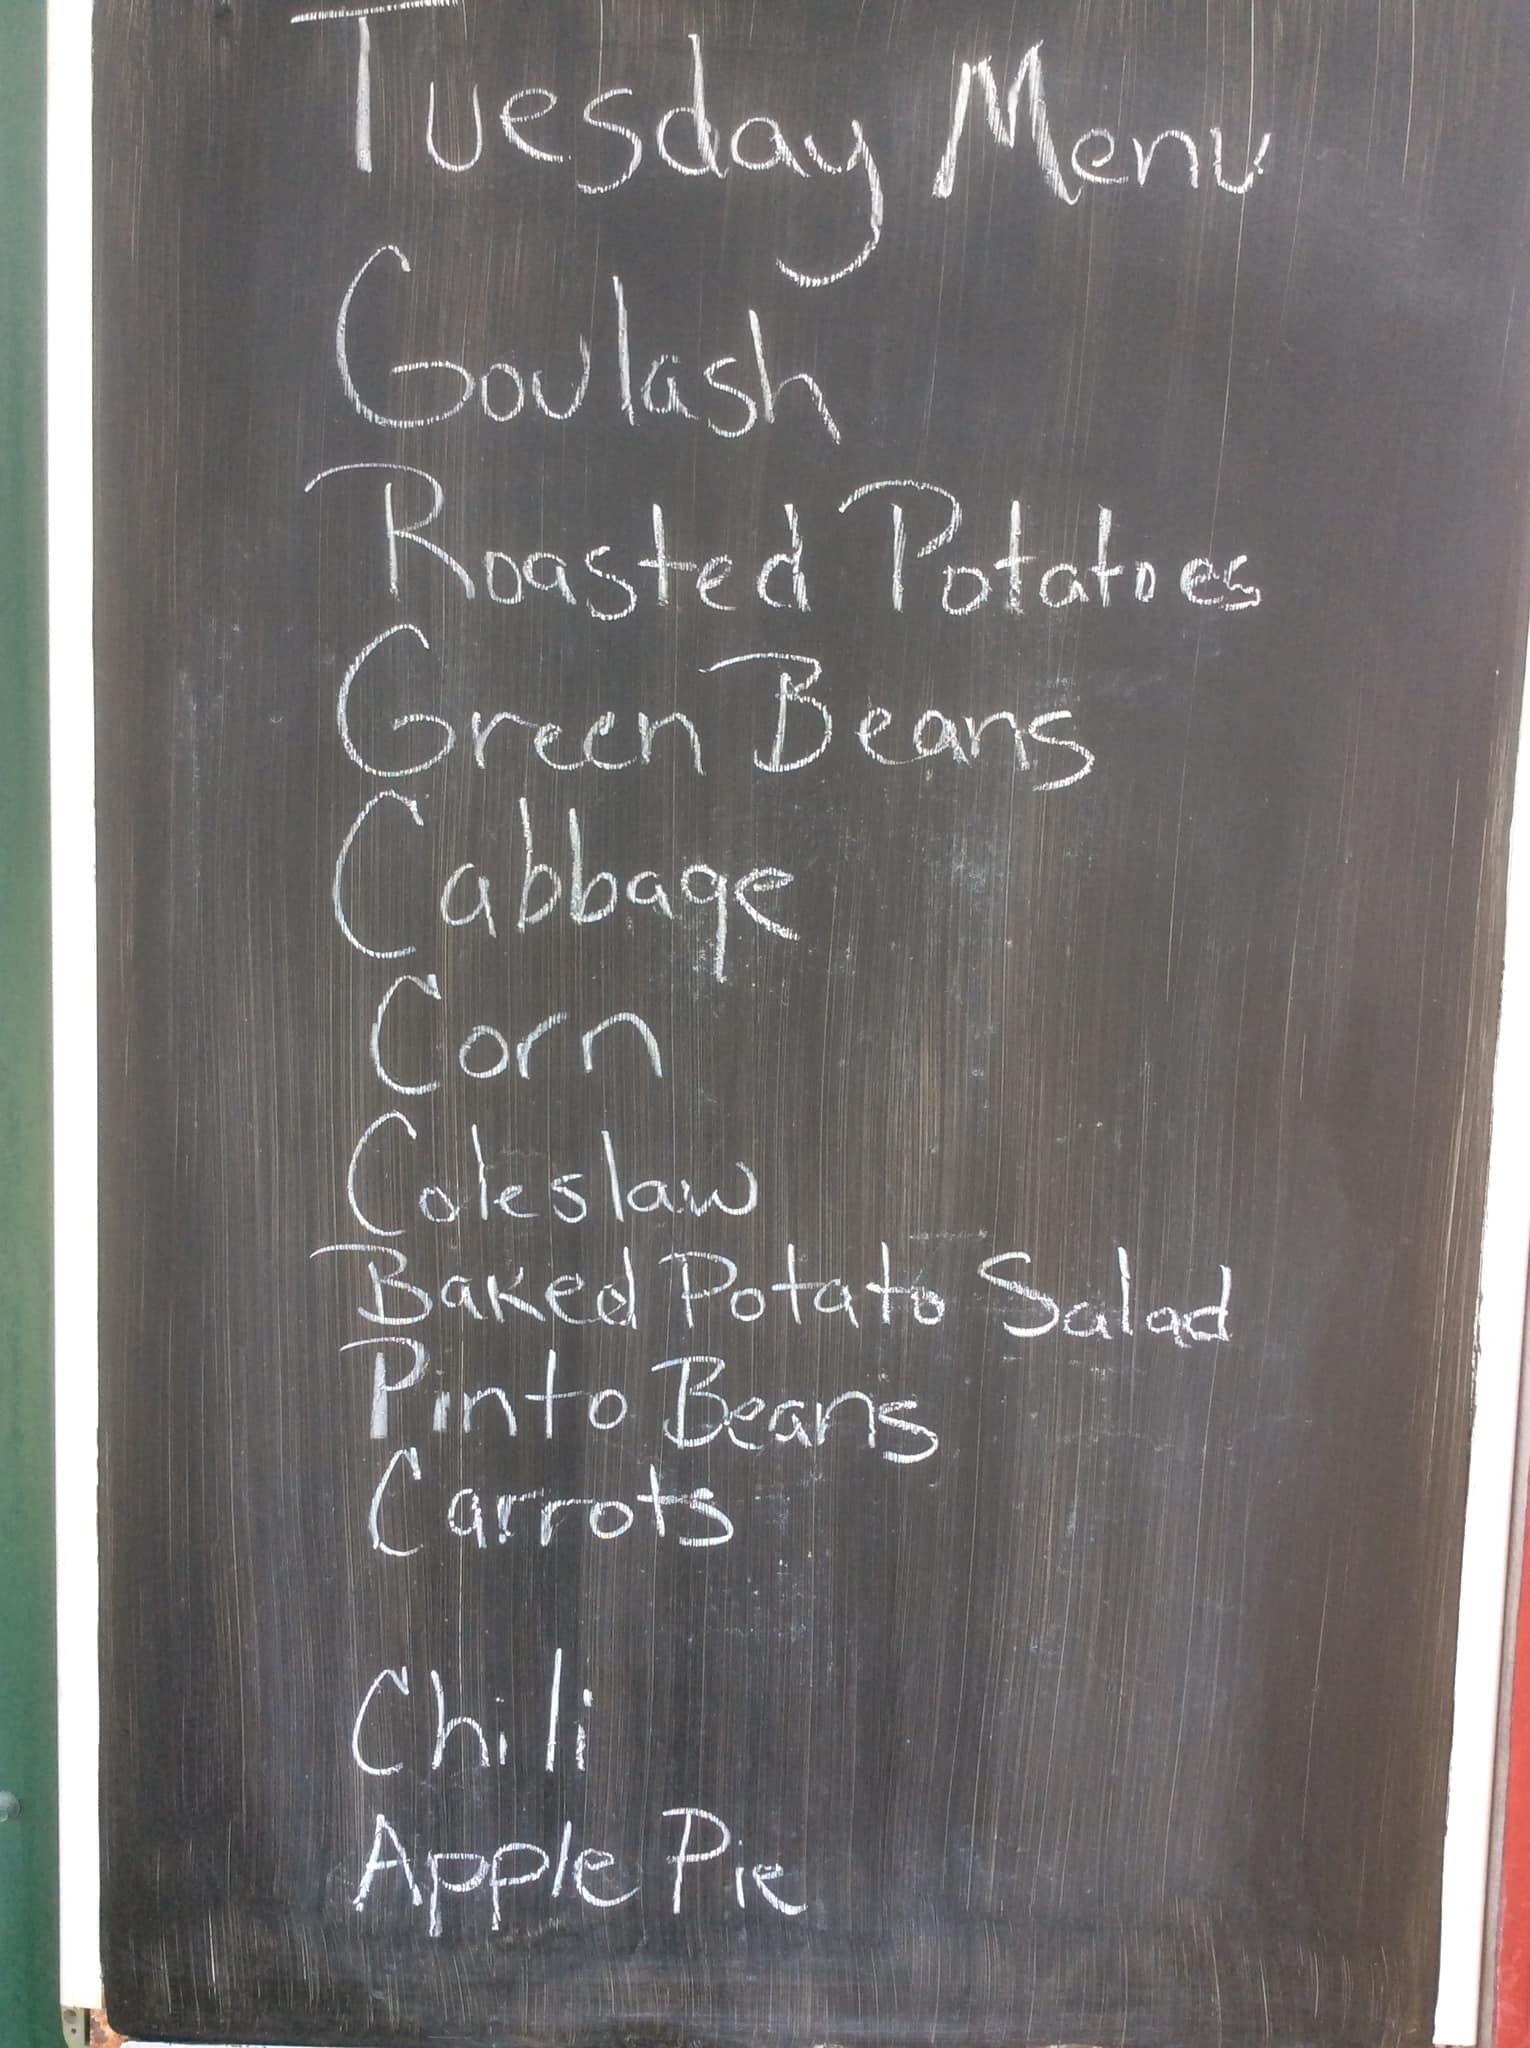 Tuesday Menu
Goulash
Roasted Potatoes
Green Beans
Cabbage
Corn
Coleslaw
Baked Potato Salad
Pinto Beans
Carrots
Chili
Apple Pie